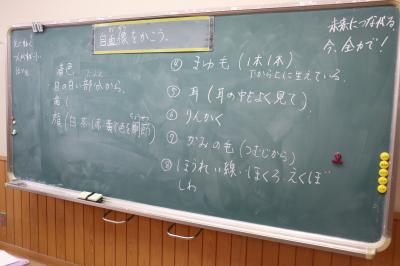 自画像をかこう。
未来につなげる
今、全力で！
着色
目の白い部分から。
顔(白 茶 赤 黄で色を調節)
④ まゆも (1本1本)
下から上に生えている。
⑤ 耳 (耳の中をよく見て)
⑥ りんかく
⑦ かみの毛 (つむじから)
⑧ ほうれい線・ほくろ・えくぼ
しわ